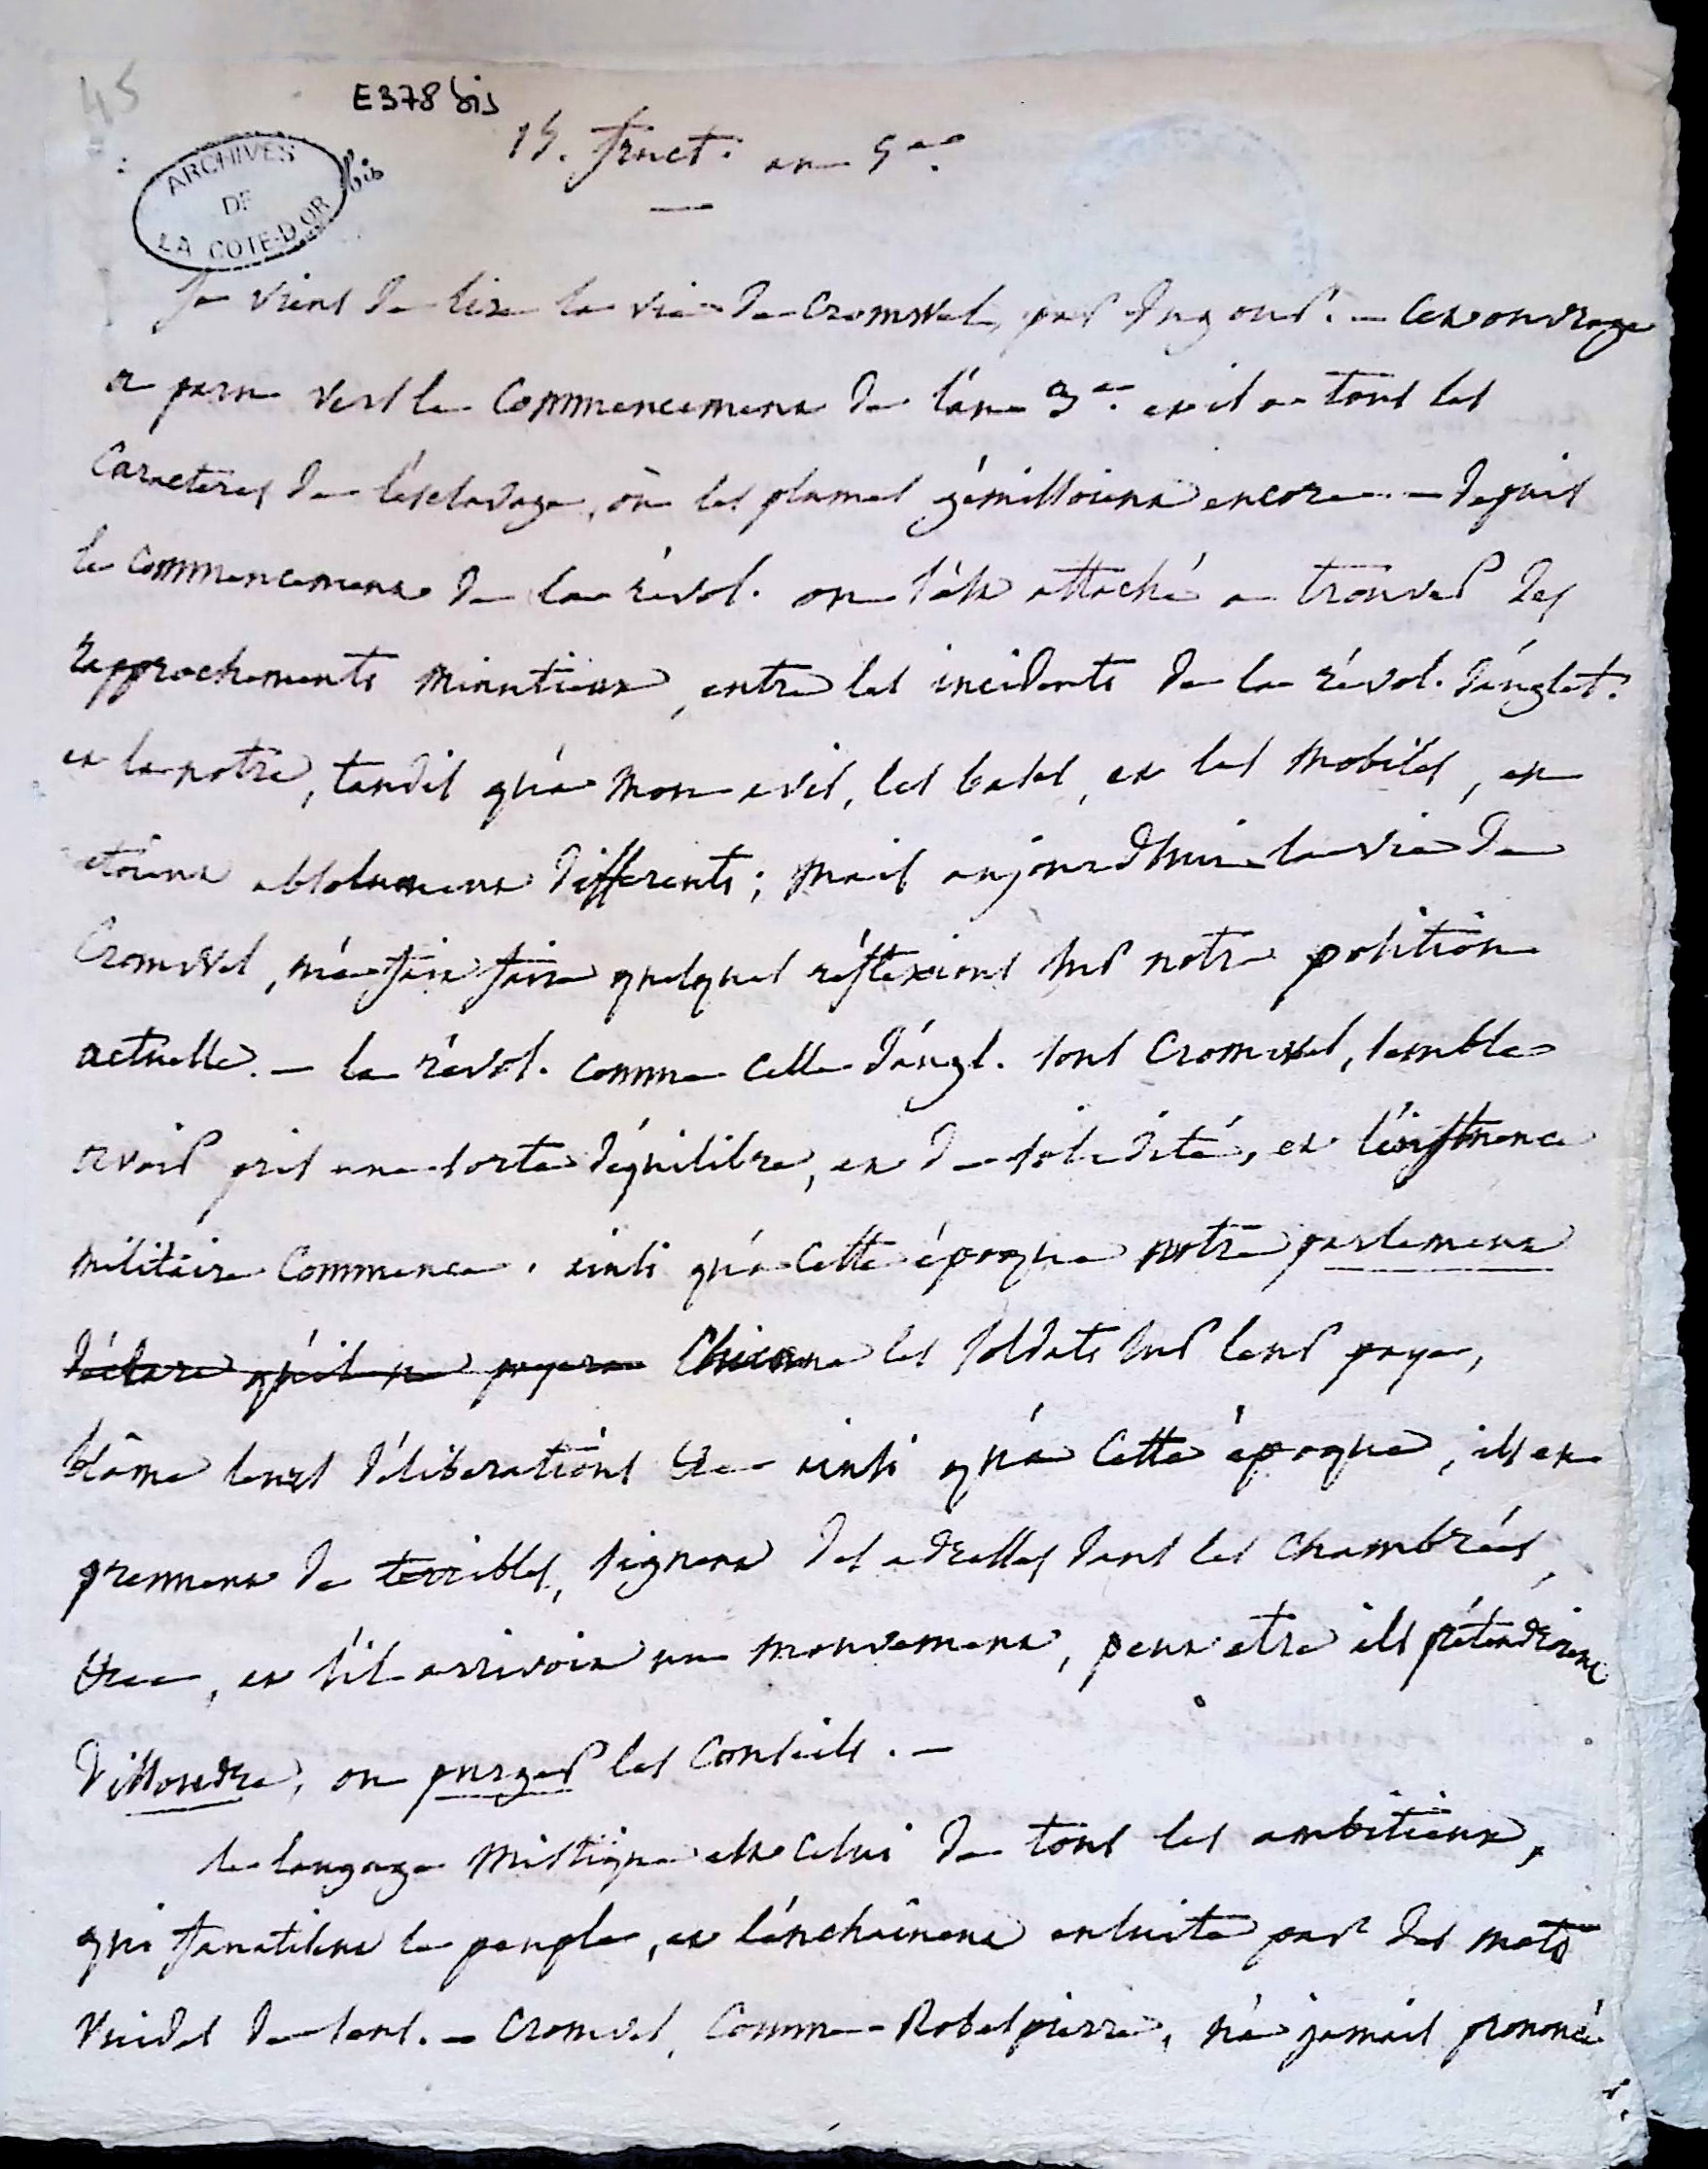 45
E378 bis
15. fruct. an 5.e
ARCHIVES
DE
LA COTE-D'OR
bis
Je viens de lire la vie de Cromwel, par Dugour. – Cet ouvrage
a paru vers le Commencement de l'an 3e. et il a tous les
Caracteres de l'ésclavage, où les plumes gémissoient encore. – depuis
le commencement de la révol. on s'ést attaché a trouver des
rapprochements minutieux, entre les incidents de la révol. d'anglet.
et la notre, tandis qu'à mon avis, les bases, et les mobiles, en
étoient absolument differents; mais aujourdhui la vie de
Cromwel, m'a fait faire quelques réflexions sur notre position
actuelle. – la révol. comme celle d'angl. sous Cromwel, semble
avoir pris une sorte d'équilibre, et de solidité, et l'éxistence
militaire Commence. ainsi qu'à Cette époque notre parlement
déclare qu'il ne payera Chicane les soldats sur leur paye,
blâme leurs déliberations &c. ainsi qu'à Cette époque, ils en
prennent de terribles, signent des adresses dans les Chambrées,
&c., et s'il arrivoit un mouvement, peut etre ils prétendroient
dissoudre, ou purger les Conseils. –
le langage mistique est celui de tous les ambitieux,
qui fanatisent le peuple, et l'énchaînent ensuite par des mots
vuides de sens. – Cromwel, Comme Robespierre, n'a jamais prononcé